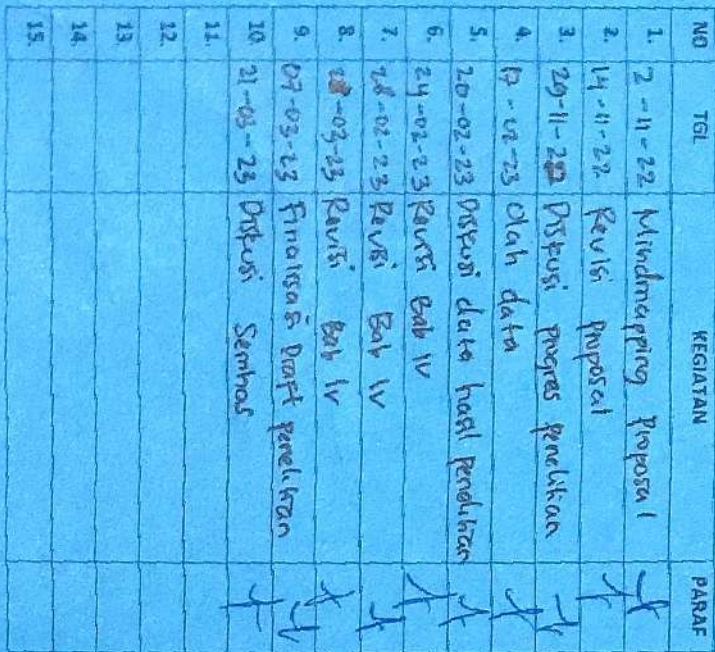 NO TGL KEGIATAN PARAF
1. 2-11-22 Mindmapping Proposal
2. 14-11-22 Revisi Proposal
3. 29-11-22 Diskusi progres penelitian
4. 17-02-23 Olah data
5. 20-02-23 Diskusi data hasil penelitian
6. 24-02-23 Revisi Bab IV
7. 28-02-23 Revisi Bab IV
8. -03-23 Revisi Bab IV
9. 07-03-23 Finalisasi Draft penelitian
10. 21-03-23 Diskusi Semhas
11.
12.
13.
14.
15.